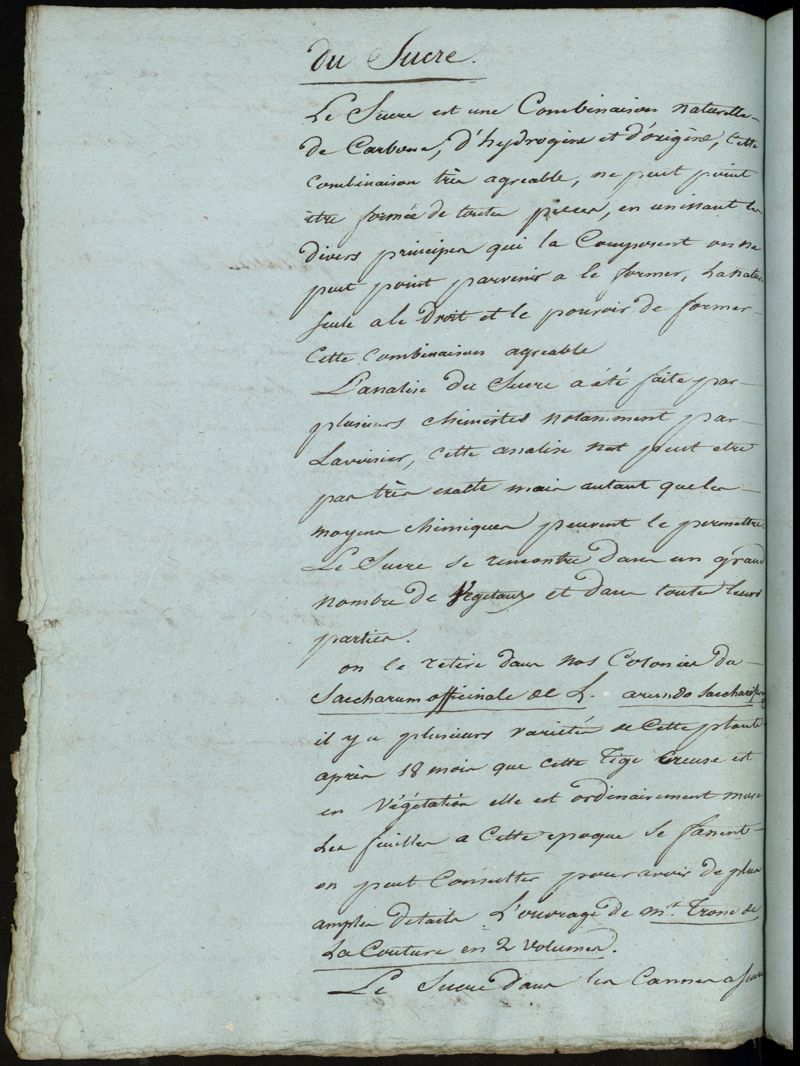 du Sucre.
Le Sucre est une Combinaison naturelle
de Carbone, d'hydrogène et d'origine, Cette
Combinaison très agreable, ne peut point
être formée de toutes pieces, en unissant les
divers principes qui la Composent on ne
peut point parvenir a le former, La nature
seule a le Droit et le pouvoir de former
Cette Combinaison agreable
L'analise du Sucre a été faite par
plusieurs chimistes notamment par
Lavoisier, Cette analise n'est peut etre
pas très exacte mais autant que les
moyens chimiques peuvent le permettre.
Le Sucre se rencontre dans un grand
nombre de Vegetaux et dans toutes leurs
parties.
on le retire dans nos Colonies du
Saccharum officinale de L. arundo Sacchari
il y a plusieurs varietés de Cette plante
après 18 mois que cette Tige Creuse est
en Végétation elle est ordinairement mure
Les feuilles a Cette epoque se fanent
on peut Consulter pour avoir de plus
amples details L'ouvrage de mr. Trone de
La Couture en 2 volumes.
Le Sucre dans les Cannes a Sucre